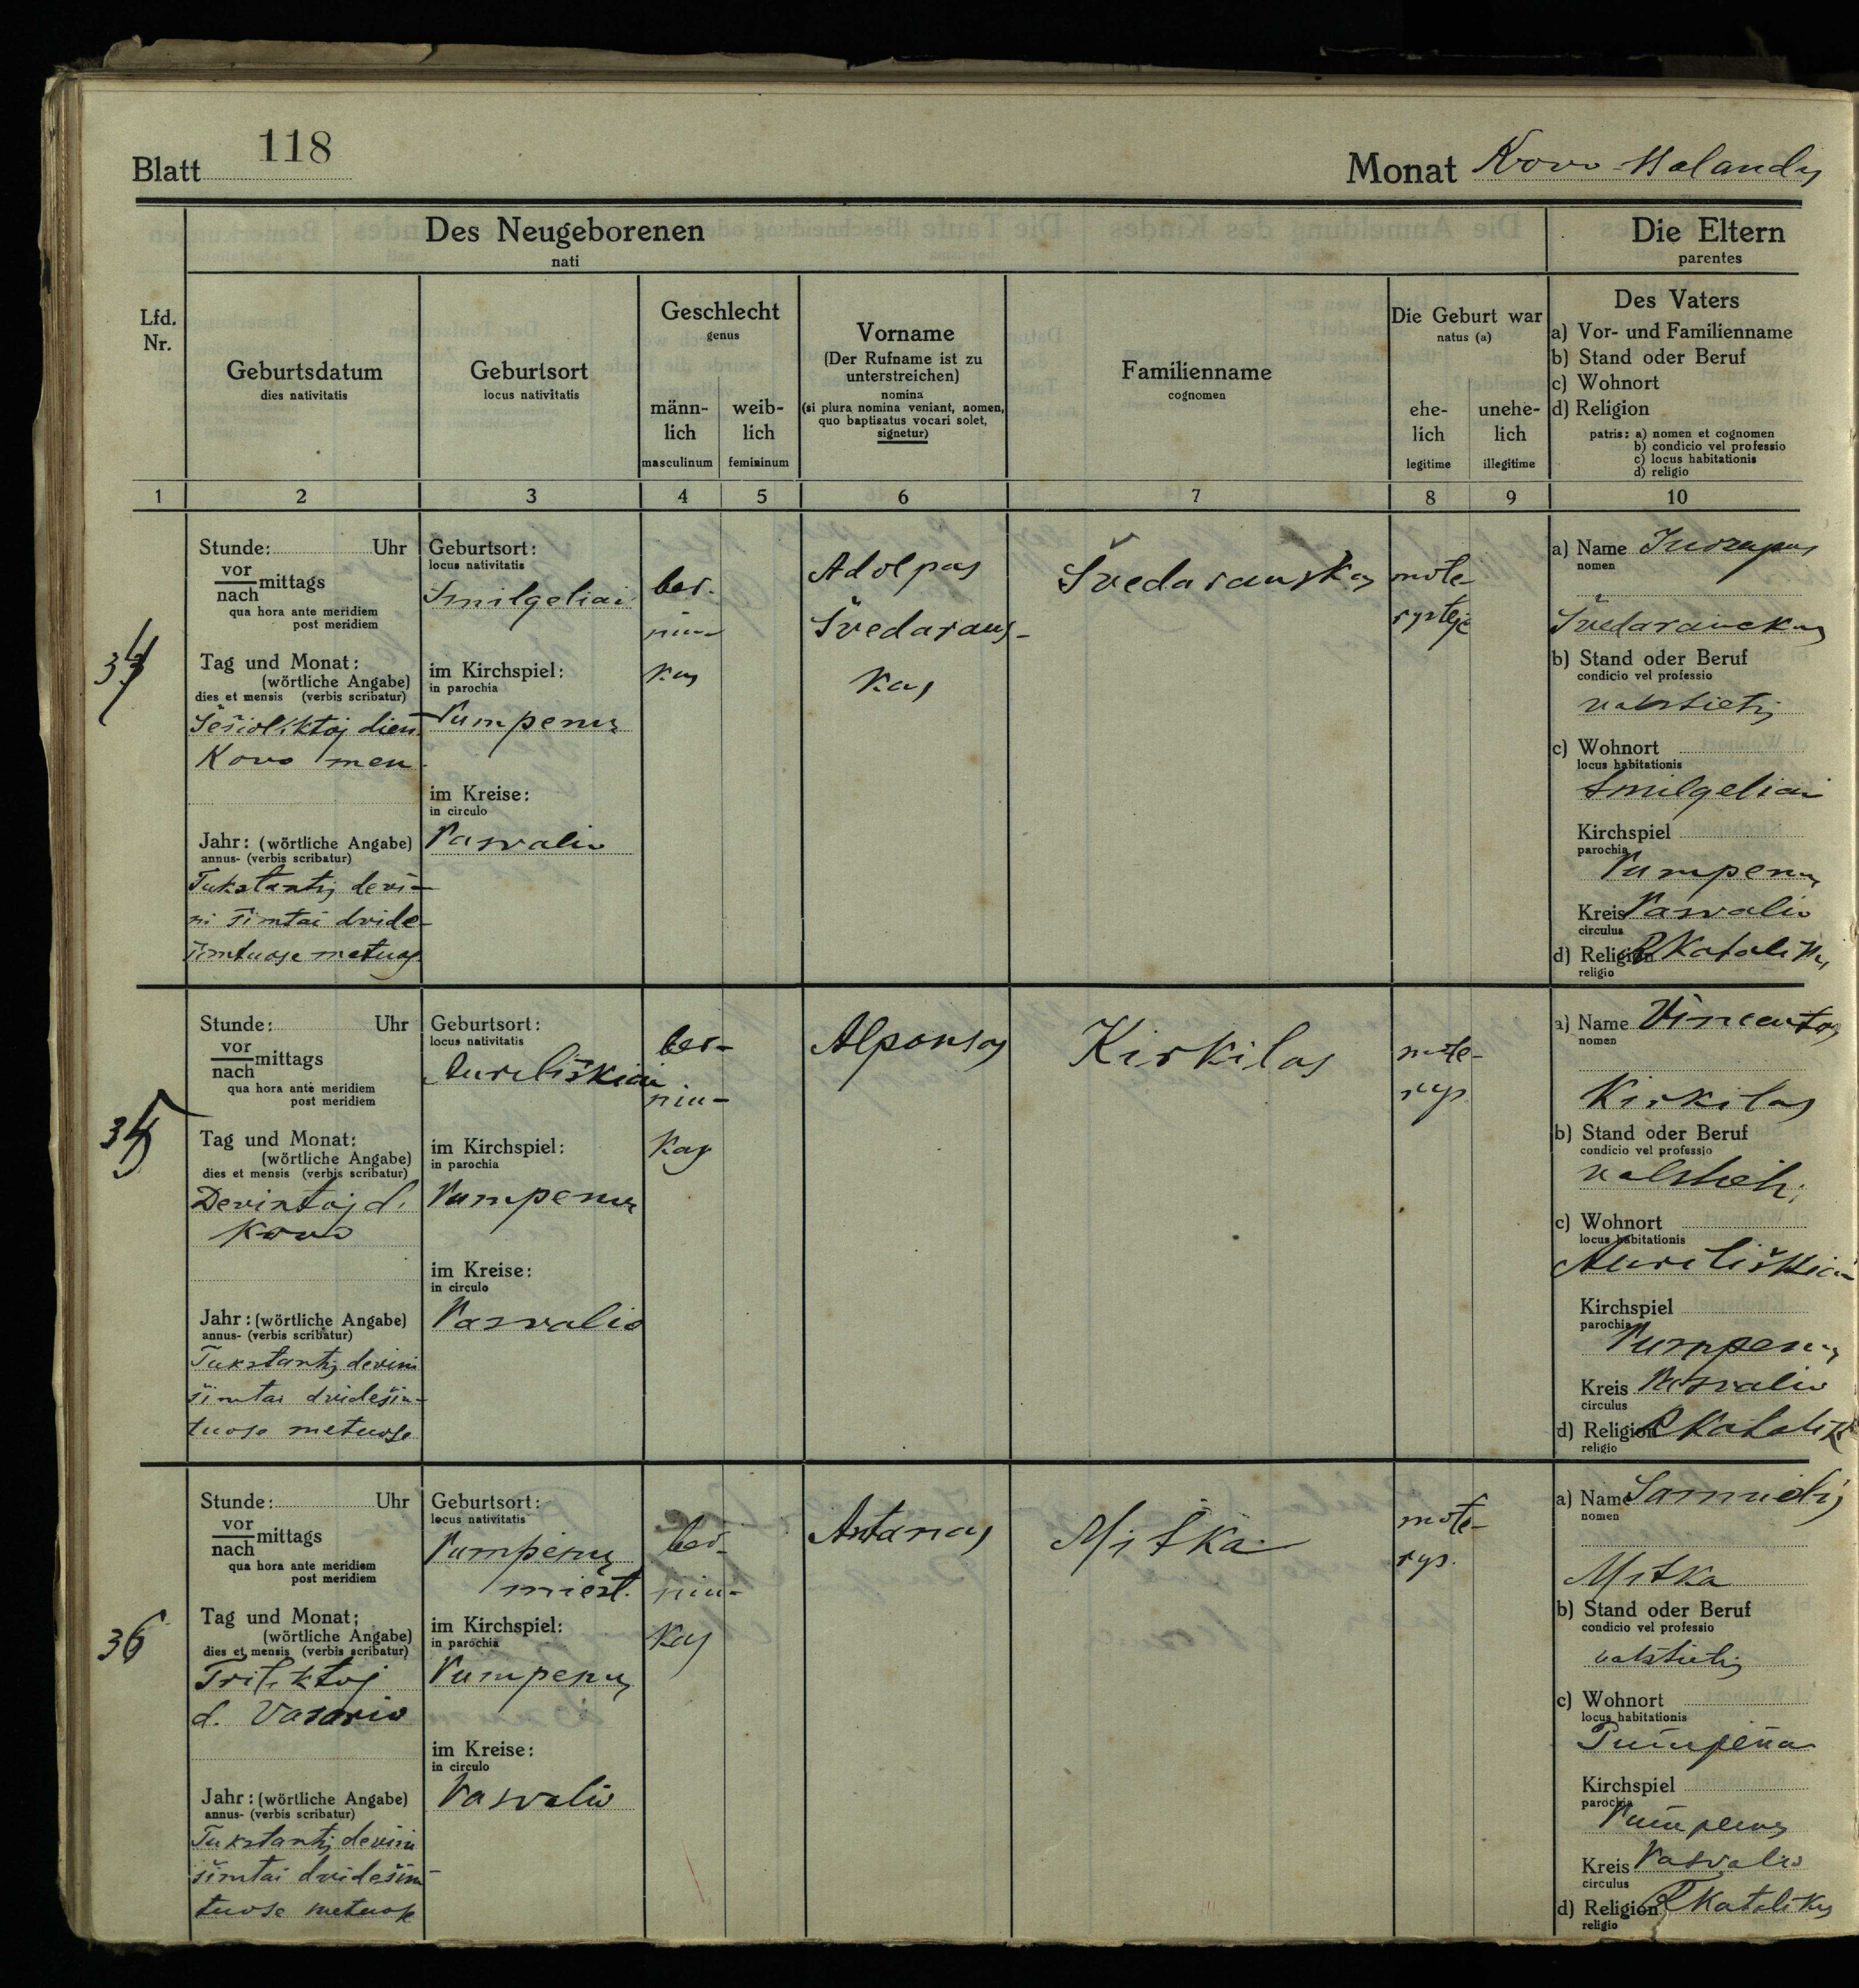 Blatt 118
Monat Kovo-Balandy
Des Neugeborenen
nati
Die Eltern
parentes
Lfd.
Nr.
Geburtsdatum
dies nativitatis
Geburtsort
locus nativitatis
Geschlecht
genus
männ-
lich
masculinum
weib-
lich
femininum
Vorname
(Der Rufname ist zu
unterstreichen)
nomina
(si plura nomina veniant, nomen,
quo baptisatus vocari solet,
signetur)
Familienname
cognomen
Die Geburt war
natus (a)
ehe-
lich
legitime
unehe-
lich
illegitime
Des Vaters
a) Vor- und Familienname
b) Stand oder Beruf
c) Wohnort
d) Religion
patris: a) nomen et cognomen
b) condicio vel professio
c) locus habitationis
d) religio
1 2 3 4 5 6 7 8 9 10
34
Stunde: Uhr
vor
nach mittags
qua hora ante meridiem
post meridiem
Tag und Monat:
(wörtliche Angabe)
dies et mensis (verbis scribatur)
Šešioliktoj dien.
Kovo men.
Jahr: (wörtliche Angabe)
annus- (verbis scribatur)
Tukstantis devi-
ni šimtai dvide-
šimtuose metuose
Geburtsort:
locus nativitatis
Smilgeliai
im Kirchspiel:
in parochia
Pumpenų
im Kreise:
in circulo
Pasvalio
ber-
niu-
kas
Adolpas
Švedaraus-
kas
Švedarauskas
mote
rystėje
a) Name Juozapas
nomen
Švedarauskas
b) Stand oder Beruf
condicio vel professio
valstietis
c) Wohnort
locus habitationis
Smilgeliai
Kirchspiel
parochia
Pumpenų
Kreis Pasvalio
circulus
d) Religion R Katalikas
religio
35
Stunde: Uhr
vor
nach mittags
qua hora ante meridiem
post meridiem
Tag und Monat:
(wörtliche Angabe)
dies et mensis (verbis scribatur)
Devintoj d.
Kovo
Jahr: (wörtliche Angabe)
annus- (verbis scribatur)
Tukstantis devini
šimtai dvidešim-
tuose metuose
Geburtsort:
locus nativitatis
Aureliškiai
im Kirchspiel:
in parochia
Pumpenų
im Kreise:
in circulo
Pasvalio
ber-
niu-
kas
Alponsas
Kirkilas
mote-
rys.
a) Name Vincentas
nomen
Kirkilas
b) Stand oder Beruf
condicio vel professio
valstieti.
c) Wohnort
locus habitationis
Aureliškiai
Kirchspiel
parochia
Pumpenų
Kreis Pasvalio
circulus
d) Religion R Katalik
religio
36
Stunde: Uhr
vor
nach mittags
qua hora ante meridiem
post meridiem
Tag und Monat:
(wörtliche Angabe)
dies et mensis (verbis scribatur)
Triliktoj
d. Vasario
Jahr: (wörtliche Angabe)
annus- (verbis scribatur)
Tukstantis devini
šimtai dvidešim-
tuose metuose
Geburtsort:
locus nativitatis
Pumpenų
miest.
im Kirchspiel:
in parochia
Pumpenų
im Kreise:
in circulo
Pasvalio
ber-
niu-
kas
Antanas
Mitka
mote-
rys.
a) Name
nomen
Mitka
b) Stand oder Beruf
condicio vel professio
valstietis
c) Wohnort
locus habitationis
Pumpėna
Kirchspiel
parochia
Pumpenų
Kreis Pasvalio
circulus
d) Religion R Katalikas
religio